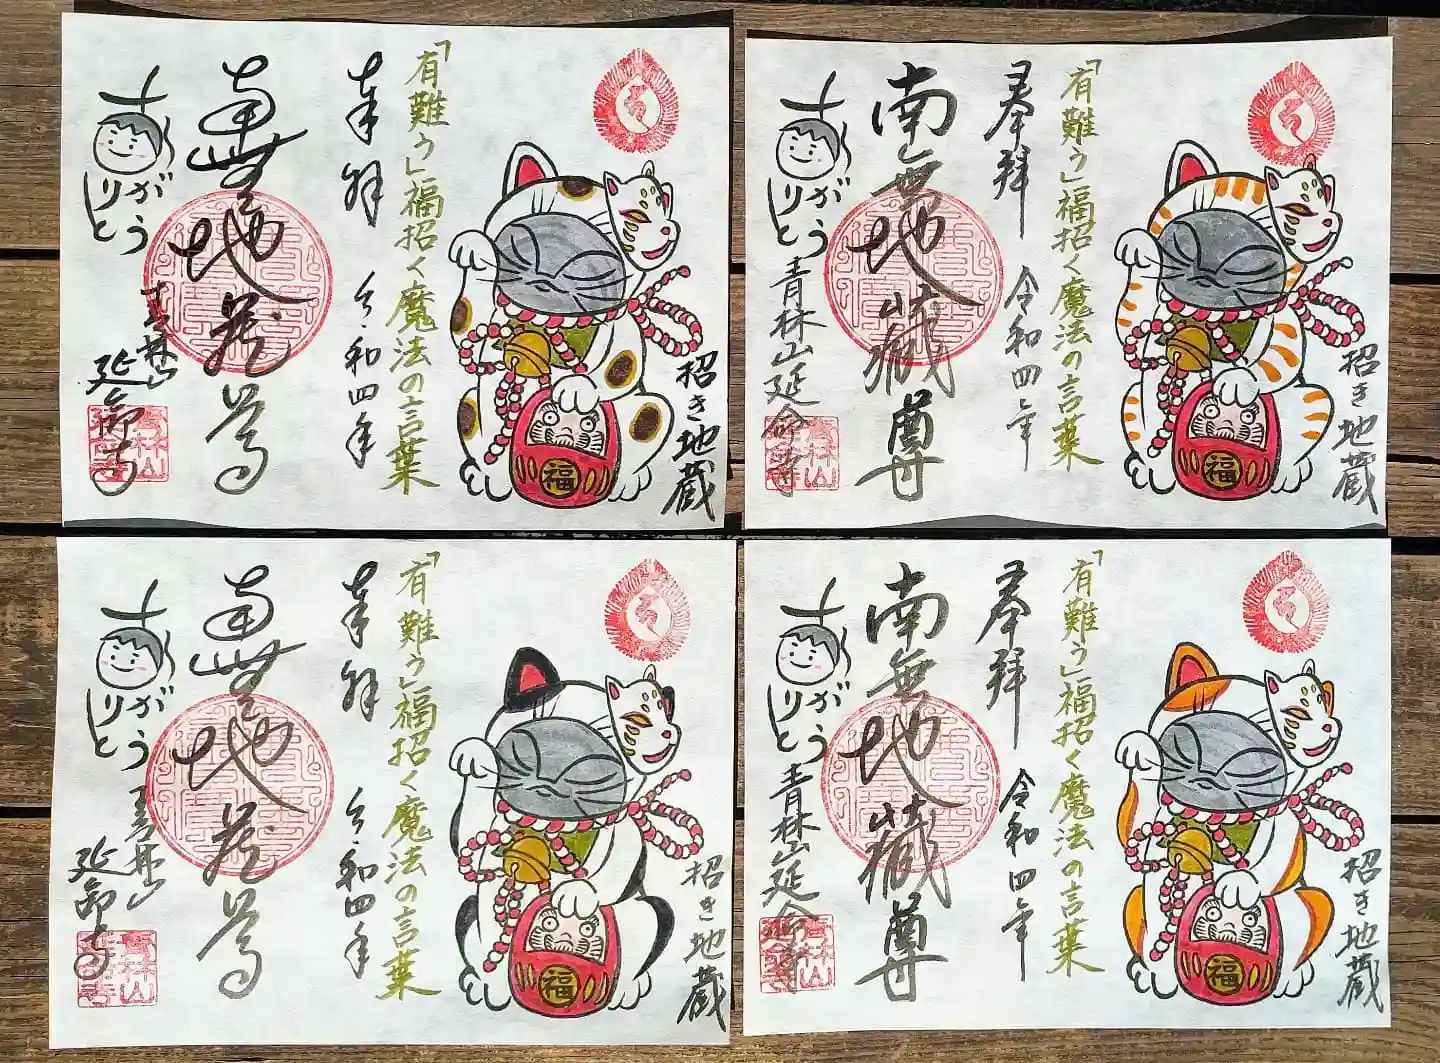 「有難う」福招く魔法の言葉
招き地蔵
奉拝
令和四年
南無地蔵尊
ありがとう
青林山
延命寺
福
「有難う」福招く魔法の言葉
招き地蔵
奉拝
令和四年
南無地蔵尊
ありがとう
青林山延命寺
福
「有難う」福招く魔法の言葉
招き地蔵
奉拝
令和四年
南無地蔵尊
ありがとう
青林山
延命寺
福
「有難う」福招く魔法の言葉
招き地蔵
奉拝
令和四年
南無地蔵尊
ありがとう
青林山延命寺
福